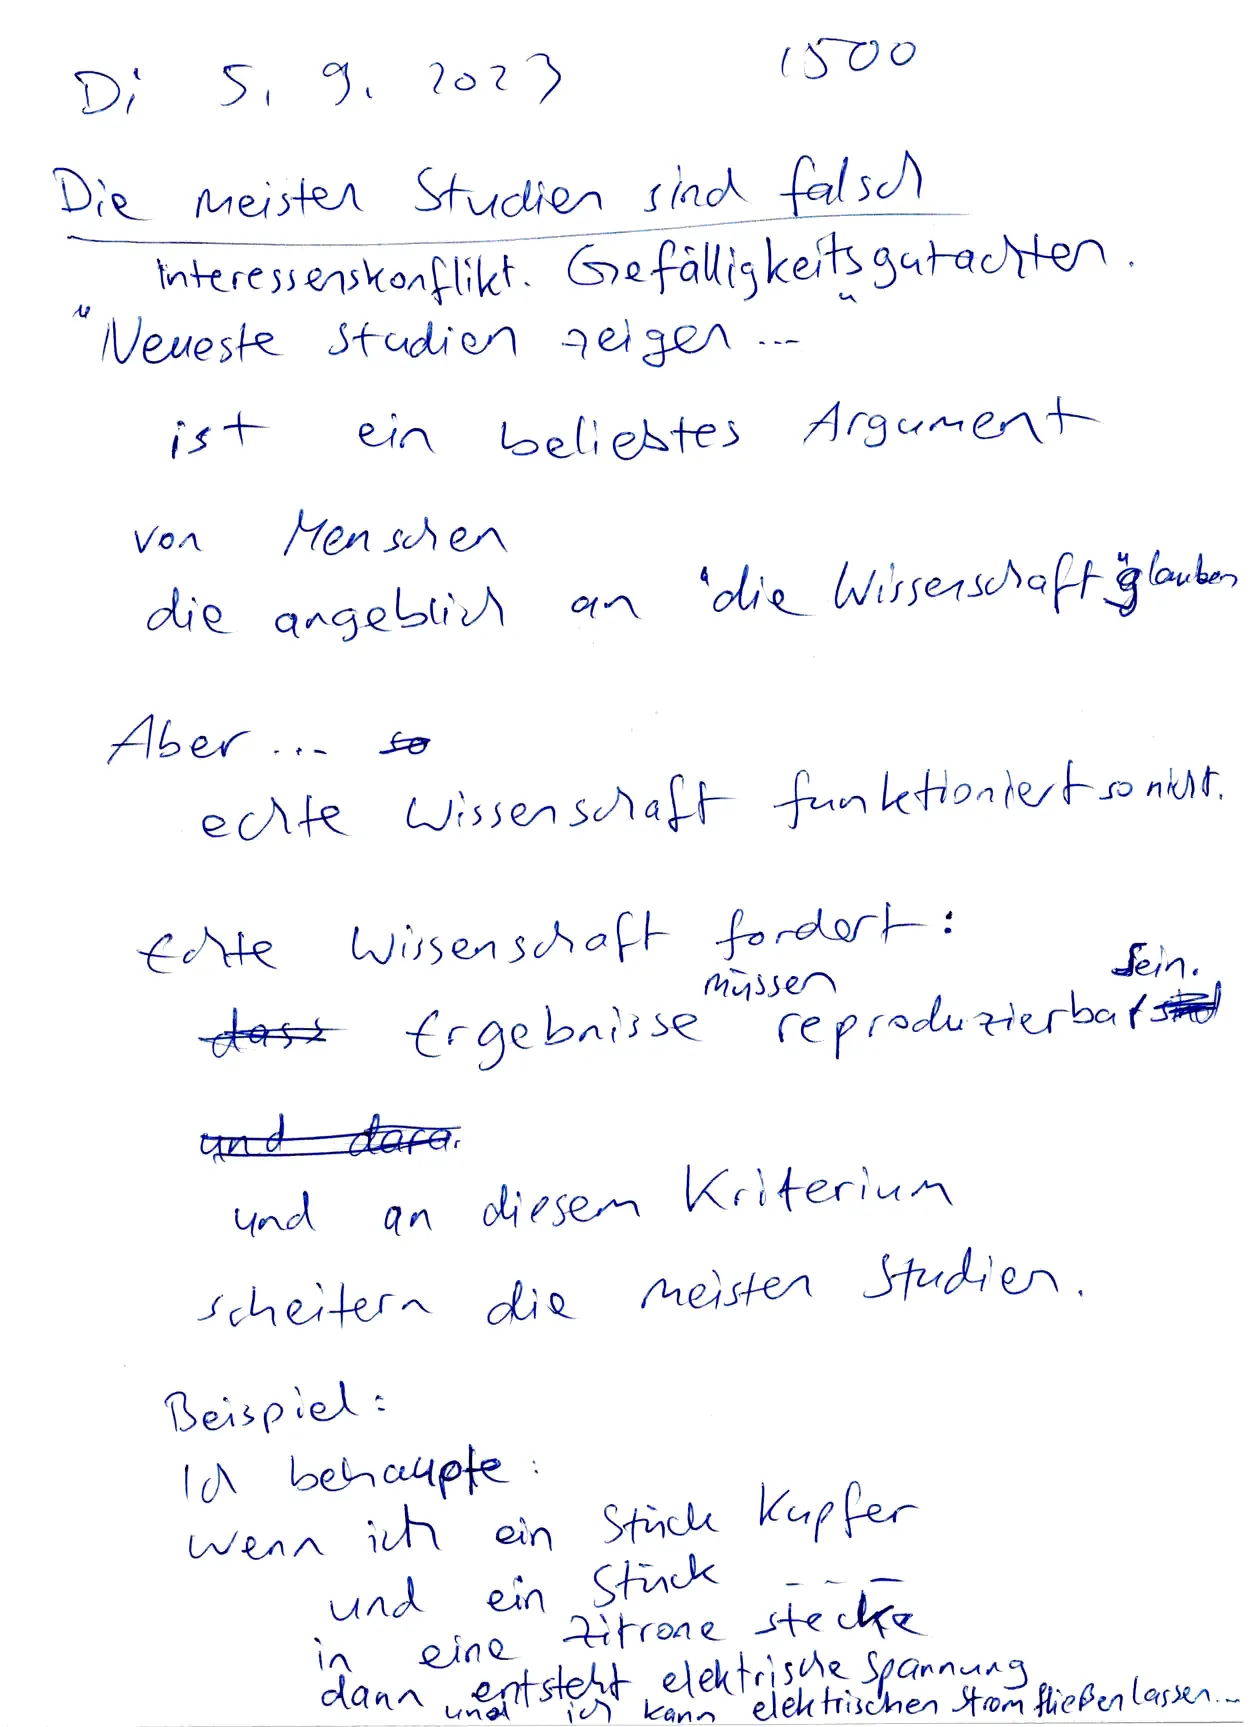 Di 5. 9. 2023 1500
Die meisten Studien sind falsch
Interessenskonflikt. Gefälligkeitsgutachten.
"Neueste Studien zeigen..."
ist ein beliebtes Argument
von Menschen
die angeblich an "die Wissenschaft" glauben
Aber... so
echte Wissenschaft funktioniert so nicht.
Echte Wissenschaft fordert:
dass Ergebnisse müssen reproduzierbar sind sein.
und dara.
und an diesem Kriterium
scheitern die meisten Studien.
Beispiel:
Ich behaupte:
wenn ich ein Stück Kupfer
und ein Stück ---
in eine Zitrone stecke
dann entsteht elektrische Spannung
und ich kann elektrischen Strom fließen lassen...